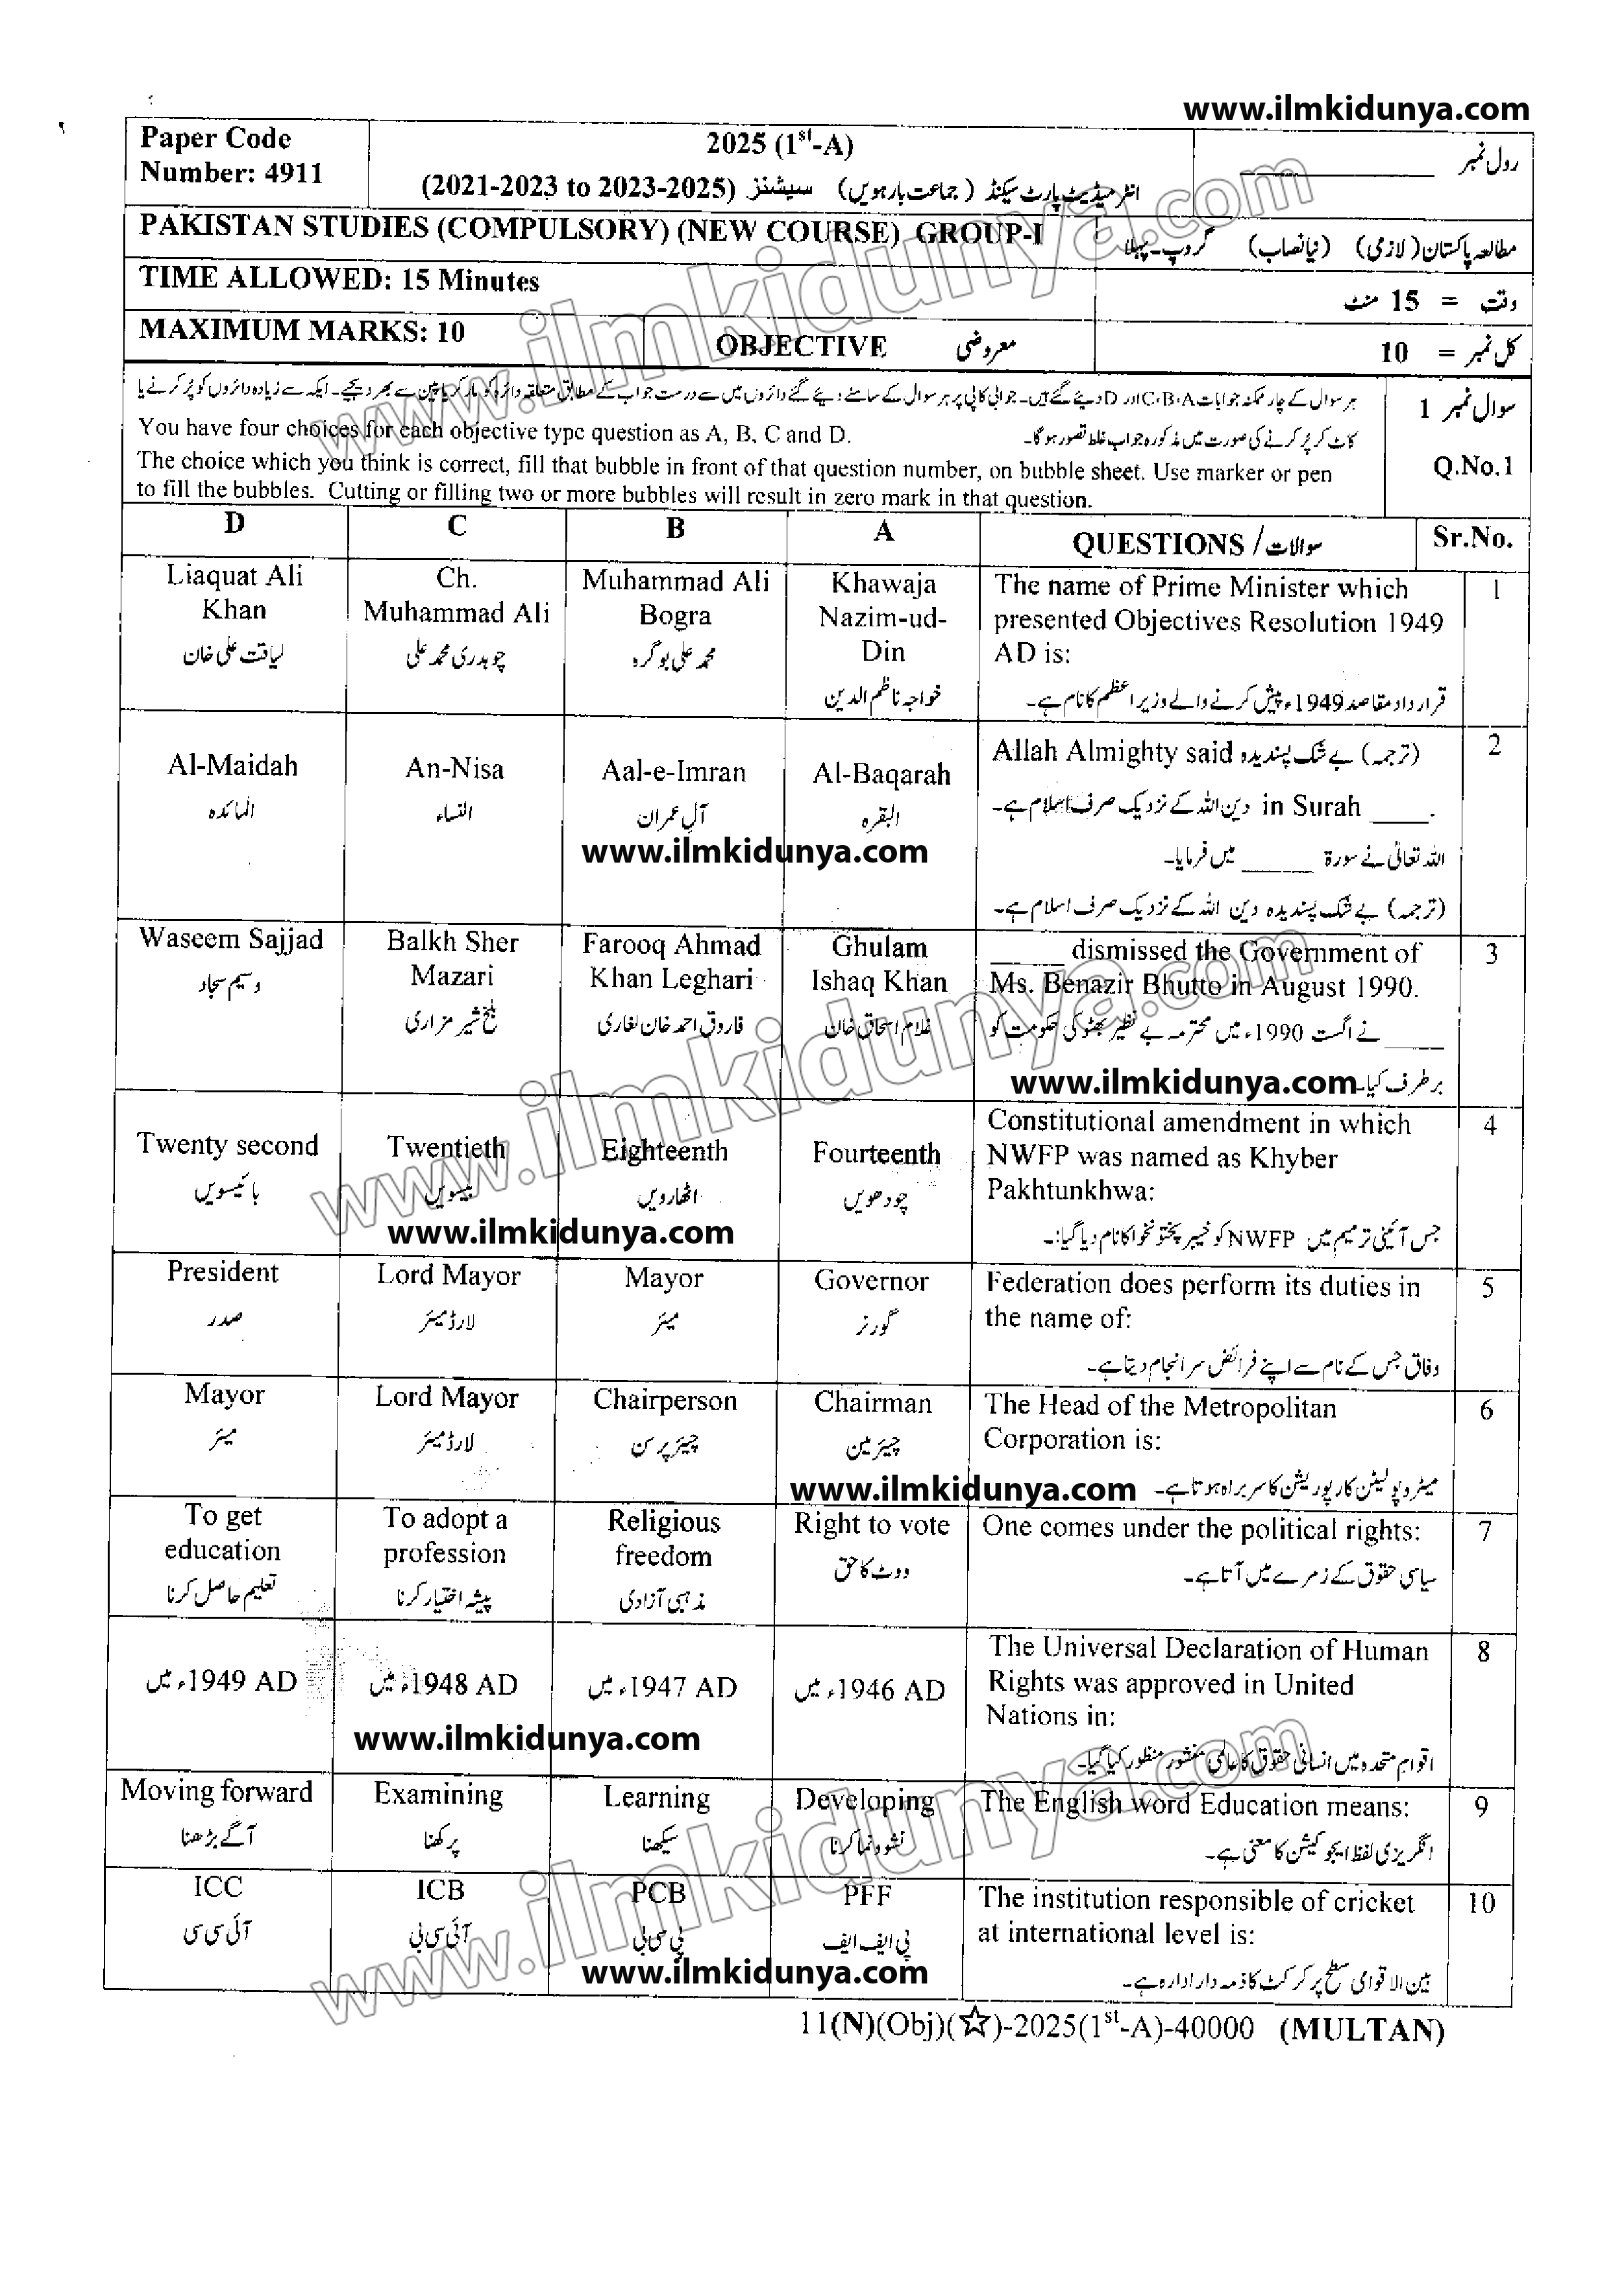 www.ilmkidunya.com
Paper Code
Number: 4911
2025 (1st-A)
رول نمبر ____________
انٹرمیڈیٹ پارٹ سیکنڈ (جماعت بارہویں) سیشنز (2021-2023 to 2023-2025)
PAKISTAN STUDIES (COMPULSORY) (NEW COURSE) GROUP-I
مطالعہ پاکستان (لازمی) (نیا نصاب) گروپ۔پہلا
TIME ALLOWED: 15 Minutes
وقت = 15 منٹ
MAXIMUM MARKS: 10
OBJECTIVE معروضی
کل نمبر = 10
سوال نمبر 1
Q.No.1
ہر سوال کے چار ممکنہ جوابات A،B،C اور D دیئے گئے ہیں۔ جوابی کاپی پر ہر سوال کے سامنے دیئے گئے دائروں میں سے درست جواب کے مطابق متعلقہ دائرہ کو مارکر یا پین سے بھر دیجیے۔ ایک سے زیادہ دائروں کو پُر کرنے یا
کاٹ کر پُر کرنے کی صورت میں مذکورہ جواب غلط تصور ہوگا۔
You have four choices for each objective type question as A, B, C and D.
The choice which you think is correct, fill that bubble in front of that question number, on bubble sheet. Use marker or pen
to fill the bubbles. Cutting or filling two or more bubbles will result in zero mark in that question.
D C B A QUESTIONS / سوالات Sr.No.
1
The name of Prime Minister which
presented Objectives Resolution 1949
AD is:
قرارداد مقاصد 1949ء پیش کرنے والے وزیراعظم کا نام ہے۔
Khawaja
Nazim-ud-
Din
خواجہ ناظم الدین
Muhammad Ali
Bogra
محمد علی بوگرہ
Ch.
Muhammad Ali
چوہدری محمد علی
Liaquat Ali
Khan
لیاقت علی خان
2
Allah Almighty said (ترجمہ) بے شک پسندیدہ
دین اللہ کے نزدیک صرف اسلام ہے۔ in Surah ____.
اللہ تعالیٰ نے سورۃ _____ میں فرمایا۔
(ترجمہ) بے شک پسندیدہ دین اللہ کے نزدیک صرف اسلام ہے۔
Al-Baqarah
البقرہ
Aal-e-Imran
آلِ عمران
An-Nisa
النساء
Al-Maidah
المائدہ
www.ilmkidunya.com
3
_____ dismissed the Government of
Ms. Benazir Bhutto in August 1990.
____ نے اگست 1990ء میں محترمہ بے نظیر بھٹو کی حکومت کو
برطرف کیا۔
www.ilmkidunya.com
Ghulam
Ishaq Khan
غلام اسحاق خان
Farooq Ahmad
Khan Leghari
فاروق احمد خان لغاری
Balkh Sher
Mazari
بلخ شیر مزاری
Waseem Sajjad
وسیم سجاد
4
Constitutional amendment in which
NWFP was named as Khyber
Pakhtunkhwa:
جس آئینی ترمیم میں NWFP کو خیبر پختونخوا کا نام دیا گیا:۔
Fourteenth
چودھویں
Eighteenth
اٹھارویں
Twentieth
بیسویں
Twenty second
بائیسویں
www.ilmkidunya.com
5
Federation does perform its duties in
the name of:
وفاق جس کے نام سے اپنے فرائض سرانجام دیتا ہے۔
Governor
گورنر
Mayor
میئر
Lord Mayor
لارڈ میئر
President
صدر
6
The Head of the Metropolitan
Corporation is:
میٹروپولیٹن کارپوریشن کا سربراہ ہوتا ہے۔
www.ilmkidunya.com
Chairman
چیئرمین
Chairperson
چیئرپرسن
Lord Mayor
لارڈ میئر
Mayor
میئر
7
One comes under the political rights:
سیاسی حقوق کے زمرے میں آتا ہے۔
Right to vote
ووٹ کا حق
Religious
freedom
مذہبی آزادی
To adopt a
profession
پیشہ اختیار کرنا
To get
education
تعلیم حاصل کرنا
8
The Universal Declaration of Human
Rights was approved in United
Nations in:
اقوامِ متحدہ میں انسانی حقوق کا عالمی منشور منظور کیا گیا۔
1946 AD ء میں
1947 AD ء میں
1948 AD ء میں
1949 AD ء میں
www.ilmkidunya.com
9
The English word Education means:
انگریزی لفظ ایجوکیشن کا معنی ہے۔
Developing
نشوونما کرنا
Learning
سیکھنا
Examining
پرکھنا
Moving forward
آگے بڑھنا
10
The institution responsible of cricket
at international level is:
بین الاقوامی سطح پر کرکٹ کا ذمہ دار ادارہ ہے۔
PFF
پی ایف ایف
PCB
پی سی بی
ICB
آئی سی بی
ICC
آئی سی سی
www.ilmkidunya.com
11(N)(Obj)(☆)-2025(1st-A)-40000 (MULTAN)
www.ilmkidunya.com
www.ilmkidunya.com
www.ilmkidunya.com